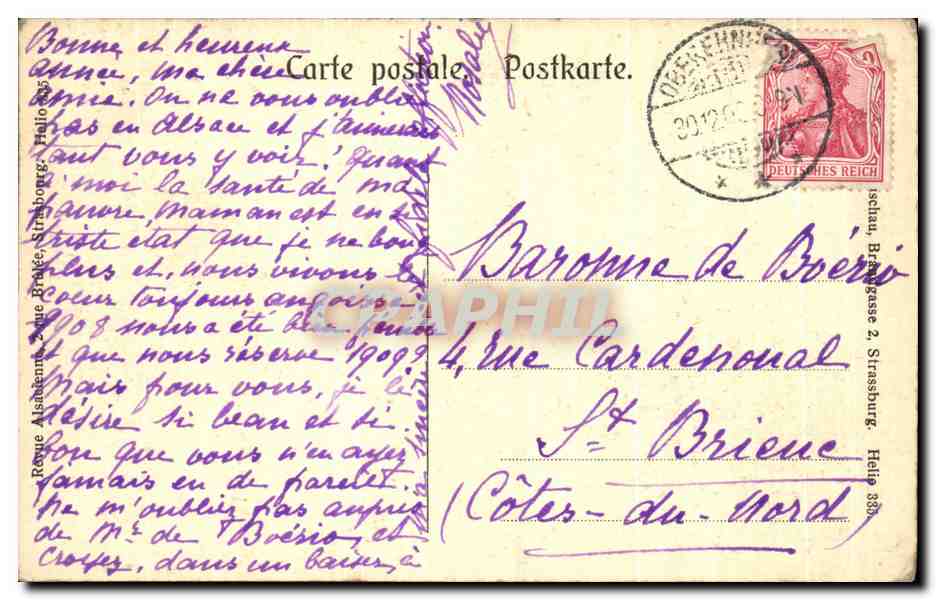 Carte postale. Postkarte.
Bonne et heureuse
année, ma chère
amie. On ne vous oublie
pas en Alsace et j'aimerais
tant vous y voir! Quant
à moi la santé de ma
pauvre maman est en si
triste état que je ne bouge
plus et nous vivons le
coeur toujours angoissé.
1908 nous a été bien
et que nous réserve 1909?
Mais pour vous, je le
désire si beau et si
bon que vous n'en ayez
jamais eu de pareil.
Ne m'oubliez pas auprès
de Mr de Boério et
croyez, dans un baiser, à
Baronne de Boério
4, rue Cardenoual
St Brieuc
(Côtes-du-Nord)
OBEREHNHEIM
30.12.0
DEUTSCHES REICH
Revue Alsacienne, 2, rue Brûlée, Strasbourg. Helio
ischau, Brandgasse 2, Strassburg. Helio 335
CRAPHIL